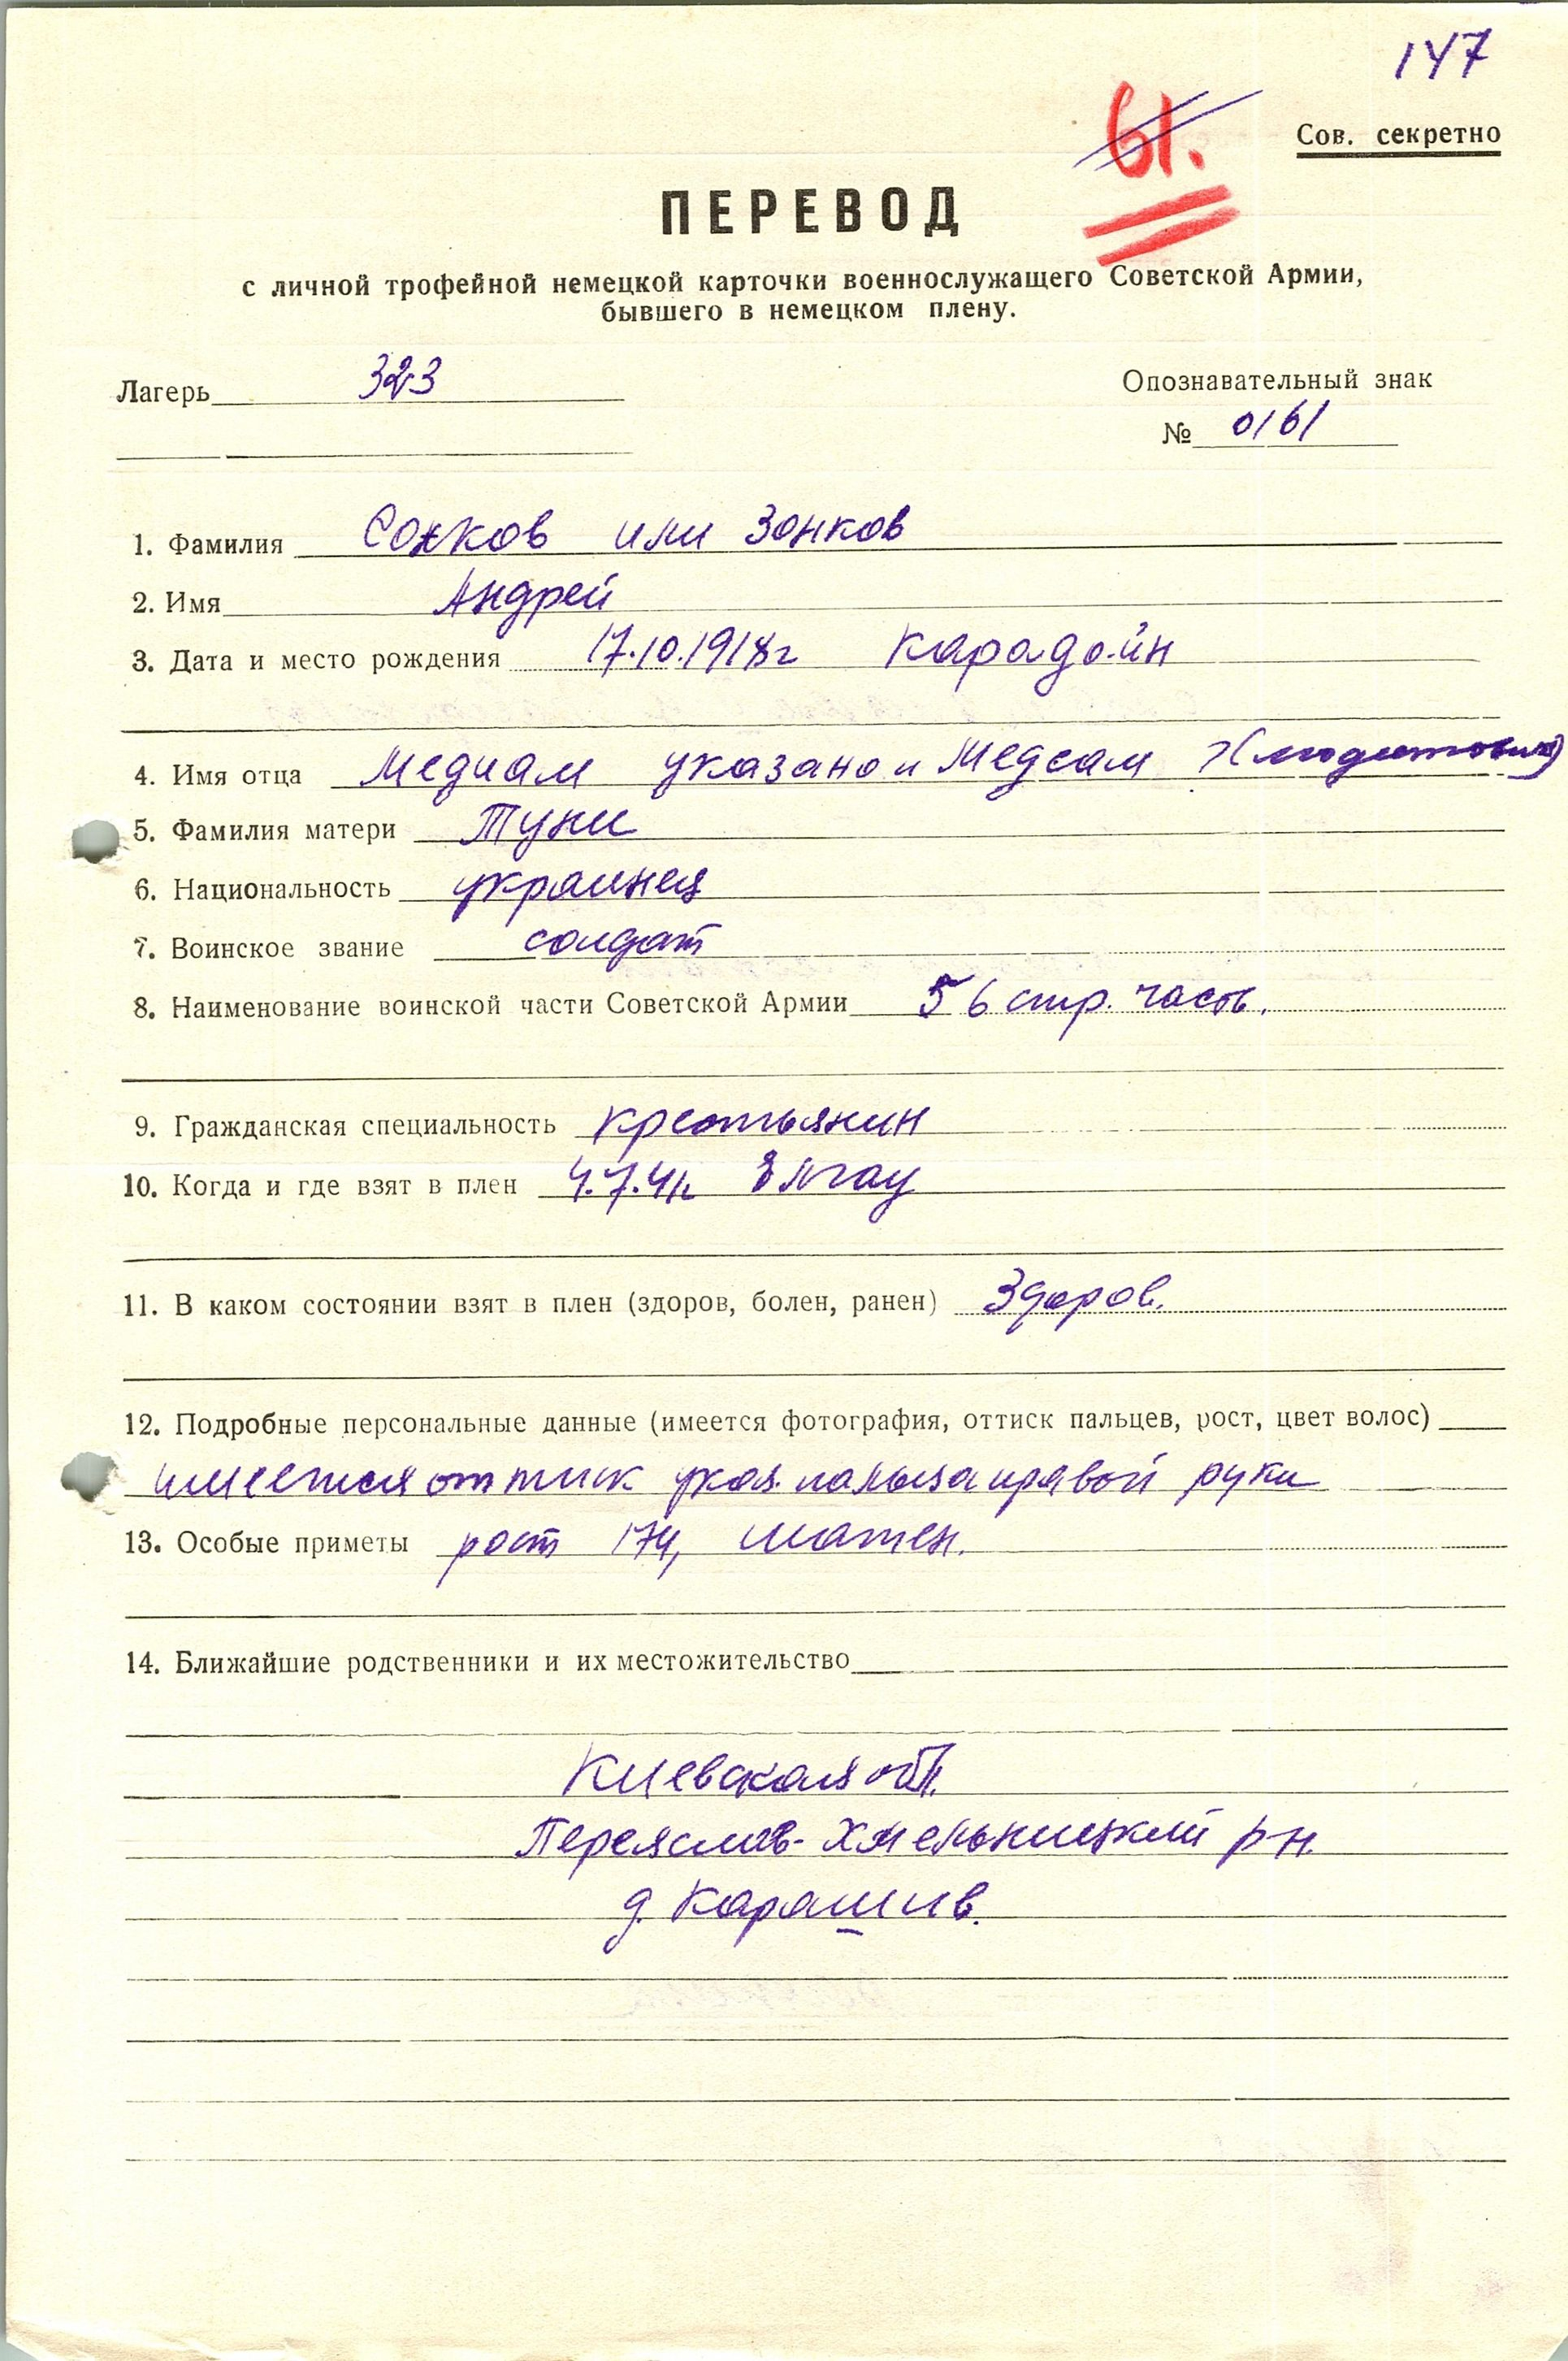 147
61.
Сов. секретно
ПЕРЕВОД
с личной трофейной немецкой карточки военнослужащего Советской Армии,
бывшего в немецком плену.
Лагерь 323
Опознавательный знак
№ 0161
1. Фамилия Сонков или Зонков
2. Имя Андрей
3. Дата и место рождения 17.10.1918г Карадоин
4. Имя отца Медиам указано и Медсам
5. Фамилия матери Туни
6. Национальность украинец
7. Воинское звание солдат
8. Наименование воинской части Советской Армии 56 стр. часть.
9. Гражданская специальность крестьянин
10. Когда и где взят в плен 4.7.41г. Элгау
11. В каком состоянии взят в плен (здоров, болен, ранен) Здоров.
12. Подробные персональные данные (имеется фотография, оттиск пальцев, рост, цвет волос)
имеется оттиск указ. пальца правой руки
13. Особые приметы рост 174, шатен.
14. Ближайшие родственники и их местожительство
Киевская обл.
Переяслав-Хмельницкий р-н.
д. Карашив.